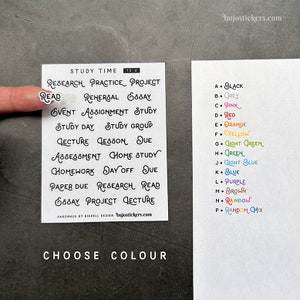 bujostickers.com
STUDY TIME
RESEARCH PRACTICE PROJECT
READ REHERSAL ESSAY
EVENT ASSIGNMENT STUDY
STUDY DAY STUDY GROUP
LECTURE LESSON DUE
ASSESSMENT HOME STUDY
HOMEWORK DAY OFF DUE
PAPER DUE RESEARCH READ
ESSAY PROJECT LECTURE
HANDMADE BY SIGRELL DESIGN bujostickers.com
CHOOSE COLOUR
A • BLACK
B • GREY
C • PINK
D • RED
E • ORANGE
F • YELLOW
G • GREEN
H • GREEN
J • LIGHT BLUE
K • BLUE
L • PURPLE
M • BROWN
N • RAINBOW
P • RANDOM MIX